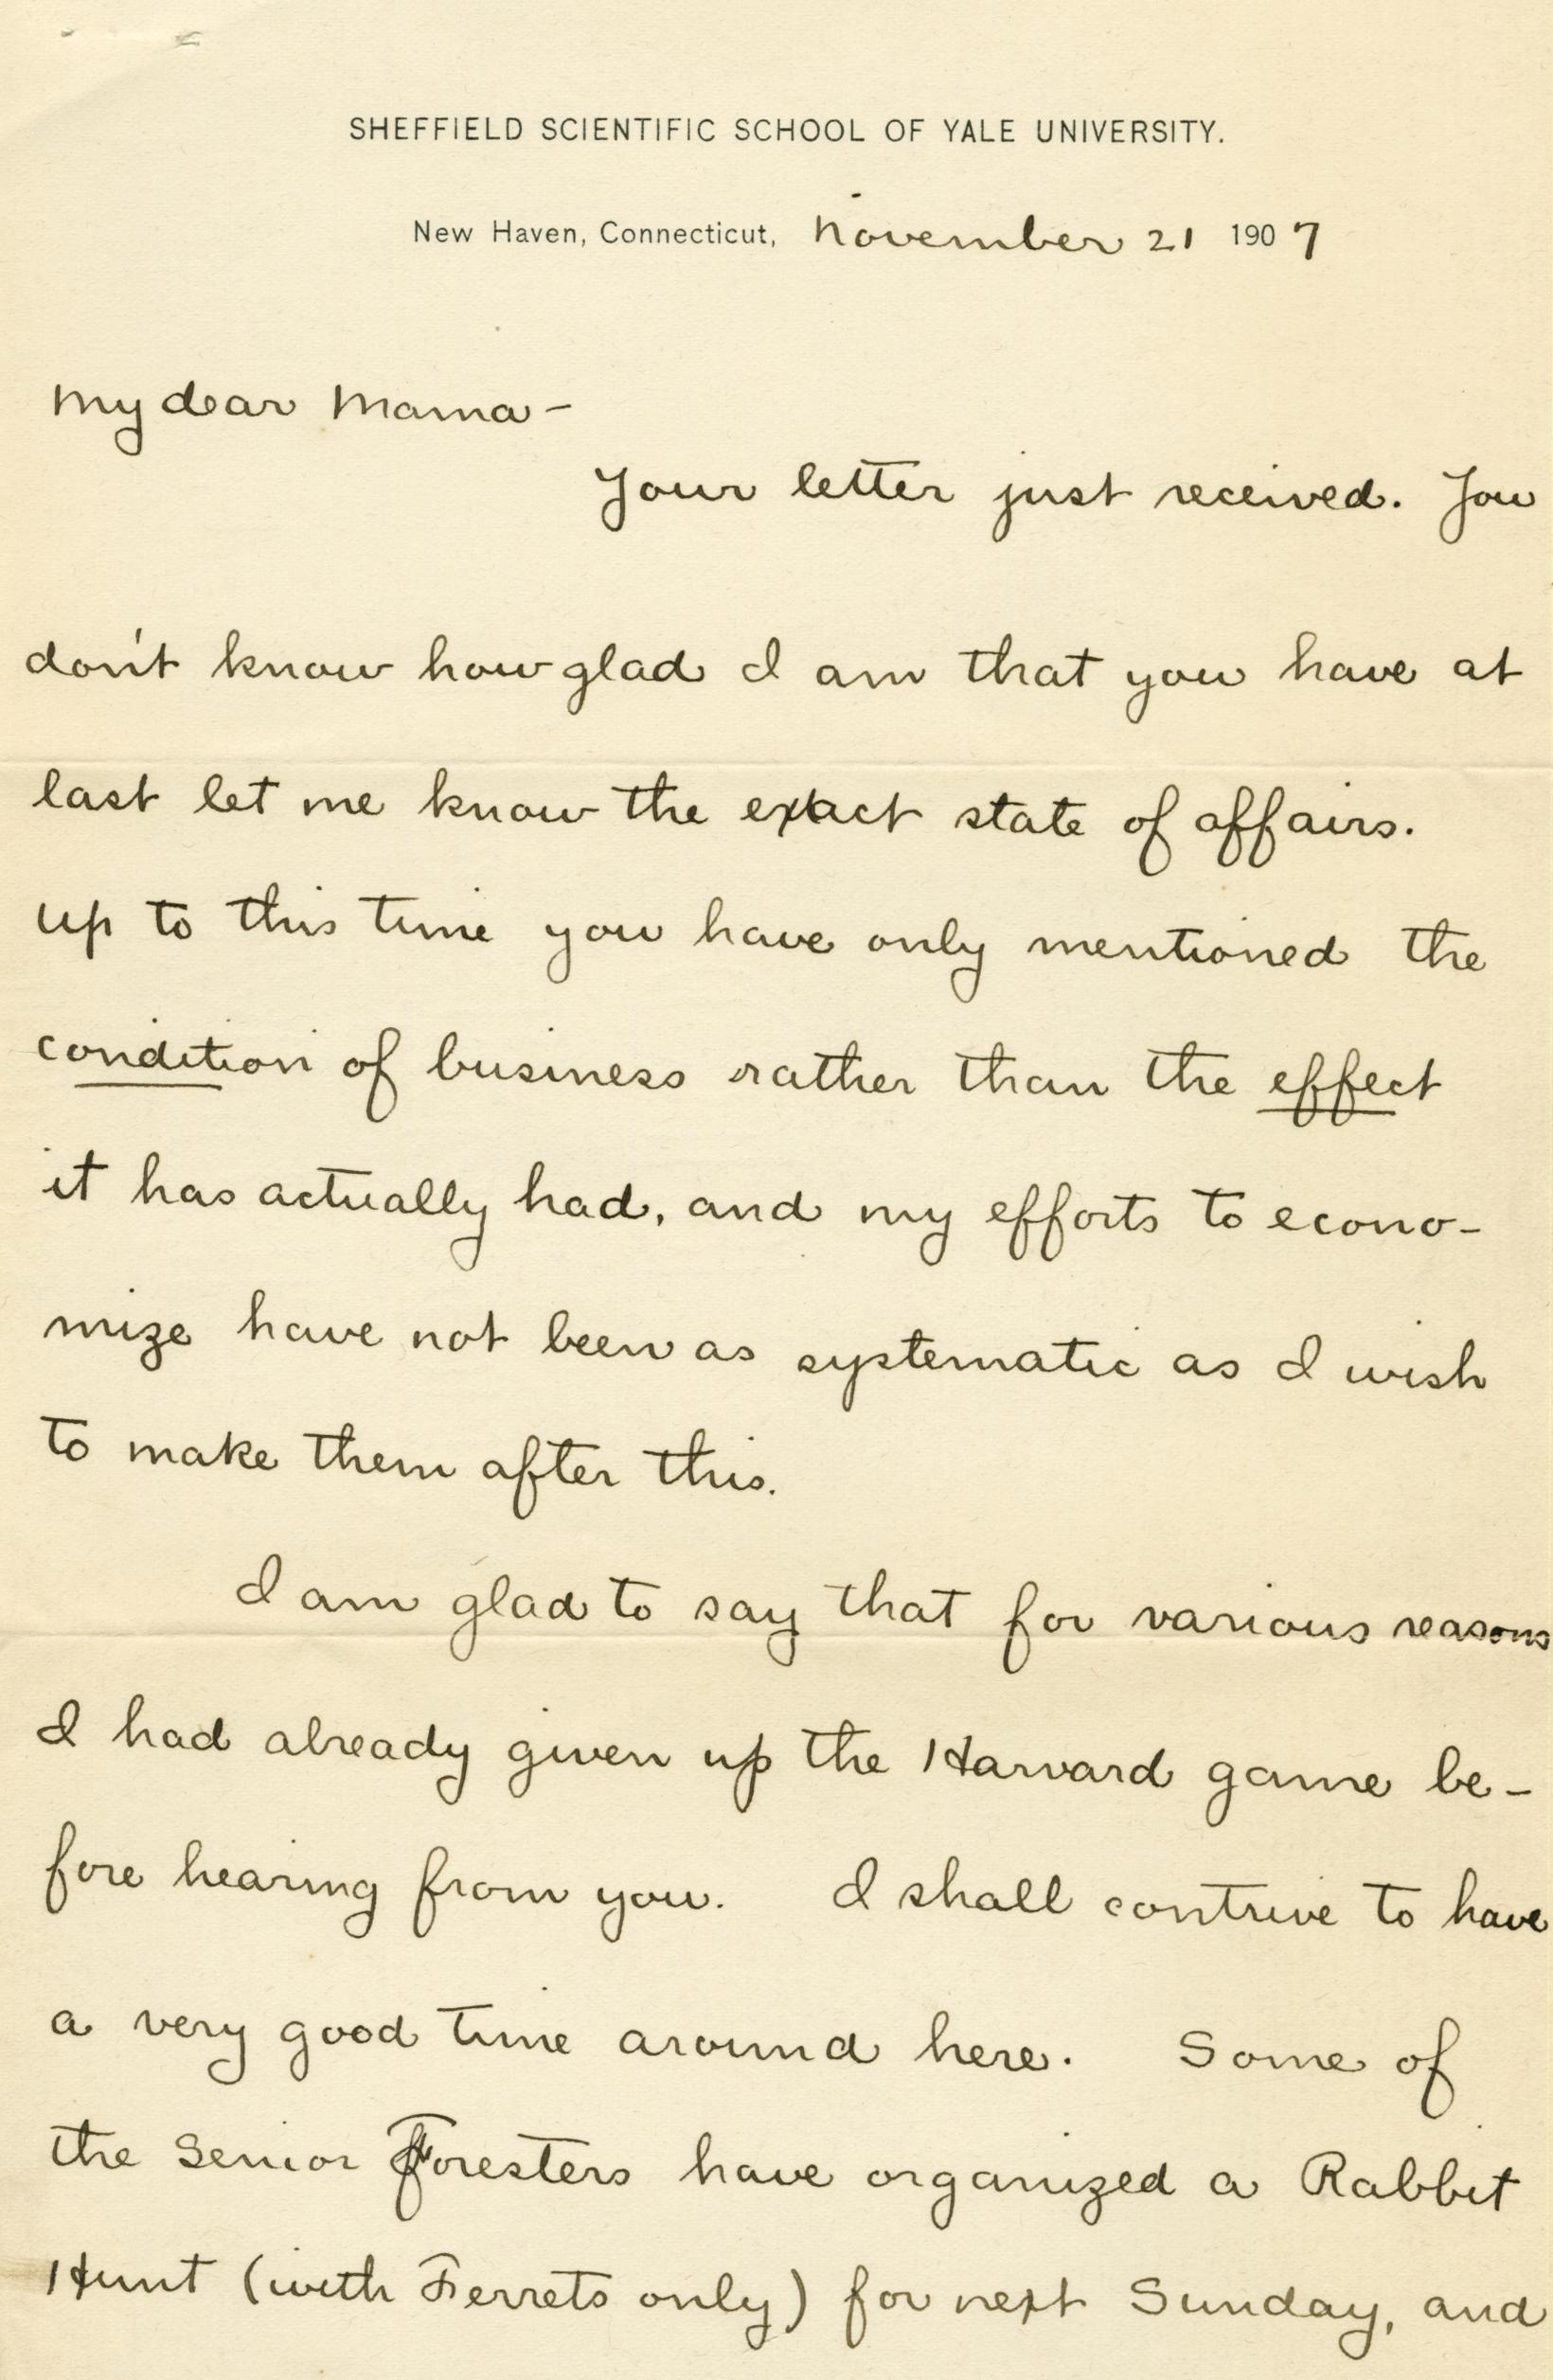 SHEFFIELD SCIENTIFIC SCHOOL OF YALE UNIVERSITY.
New Haven, Connecticut, November 21 1907
My dear Mama—
Your letter just received. You
don't know how glad I am that you have at
last let me know the exact state of affairs.
Up to this time you have only mentioned the
condition of business rather than the effect
it has actually had, and my efforts to econo-
mize have not been as systematic as I wish
to make them after this.
I am glad to say that for various reasons
I had already given up the Harvard game be-
fore hearing from you. I shall contrive to have
a very good time around here. Some of
the Senior Foresters have organized a Rabbit
Hunt (with Ferrets only) for next Sunday, and